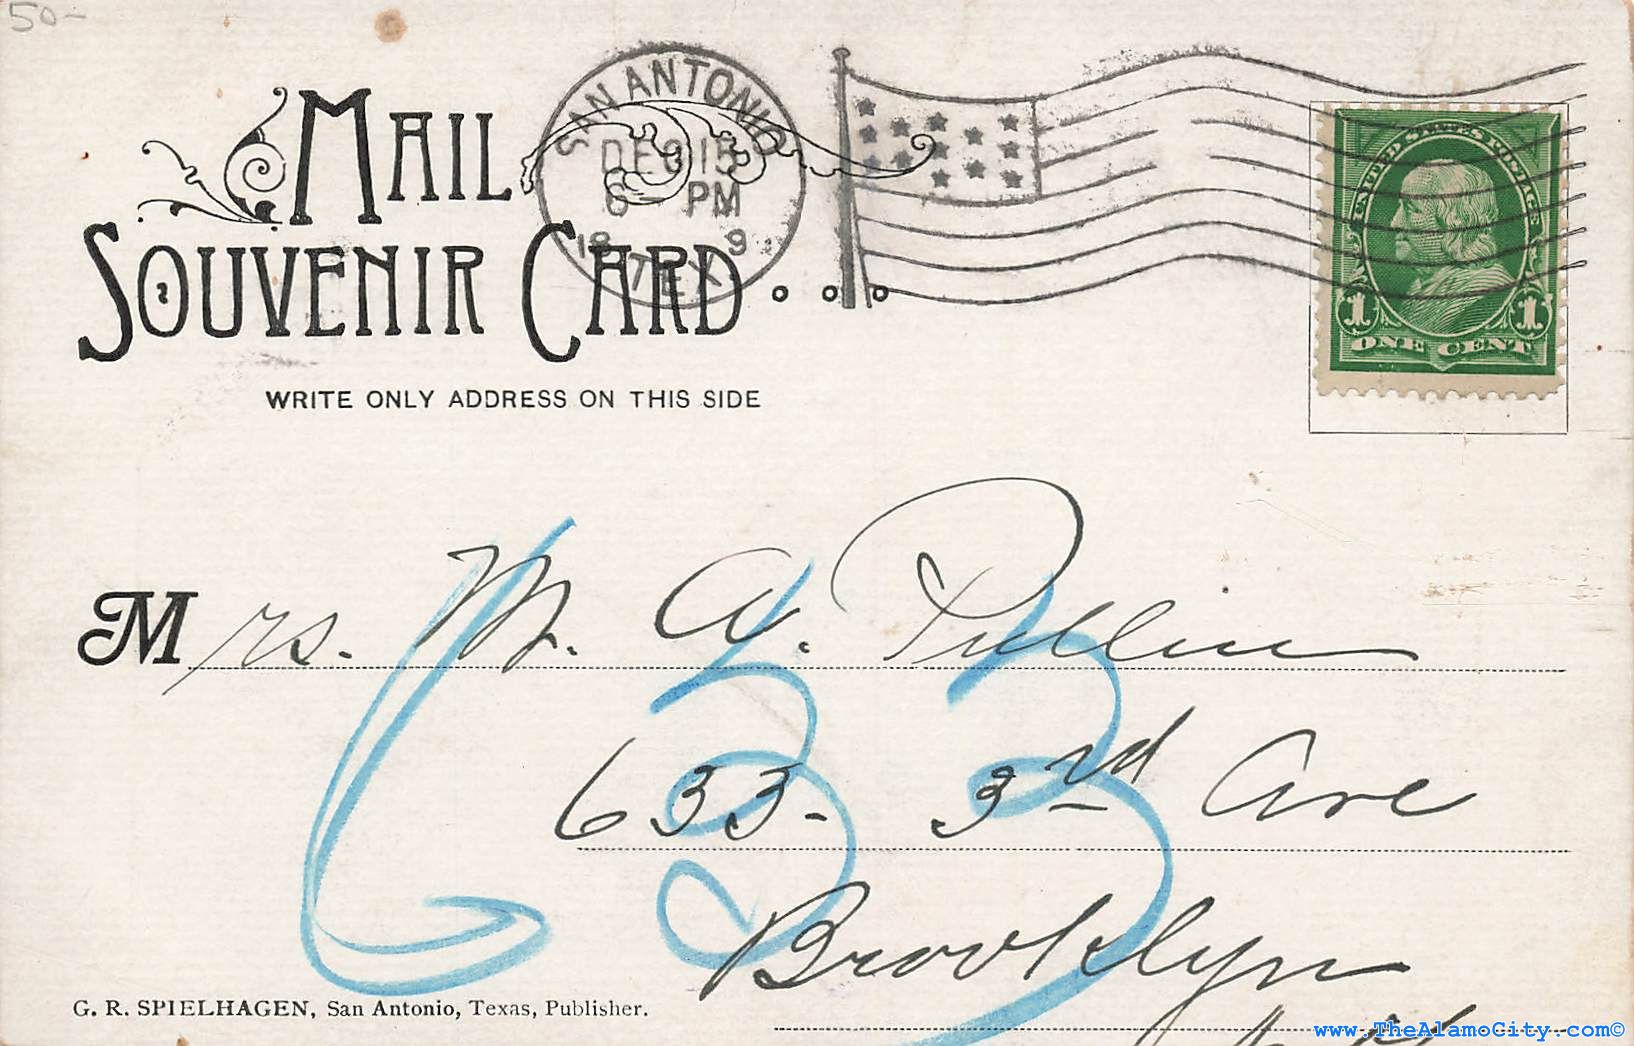 50-
MAIL
SOUVENIR CARD...
WRITE ONLY ADDRESS ON THIS SIDE
SAN ANTONIO
DEC 15
6 - PM
18 9
TEX.
UNITED STATES POSTAGE
1 1
ONE CENT
Mrs. M. A. Pullin
633 - 3rd Ave
Brooklyn
633
G. R. SPIELHAGEN, San Antonio, Texas, Publisher.
www.TheAlamoCity.com©